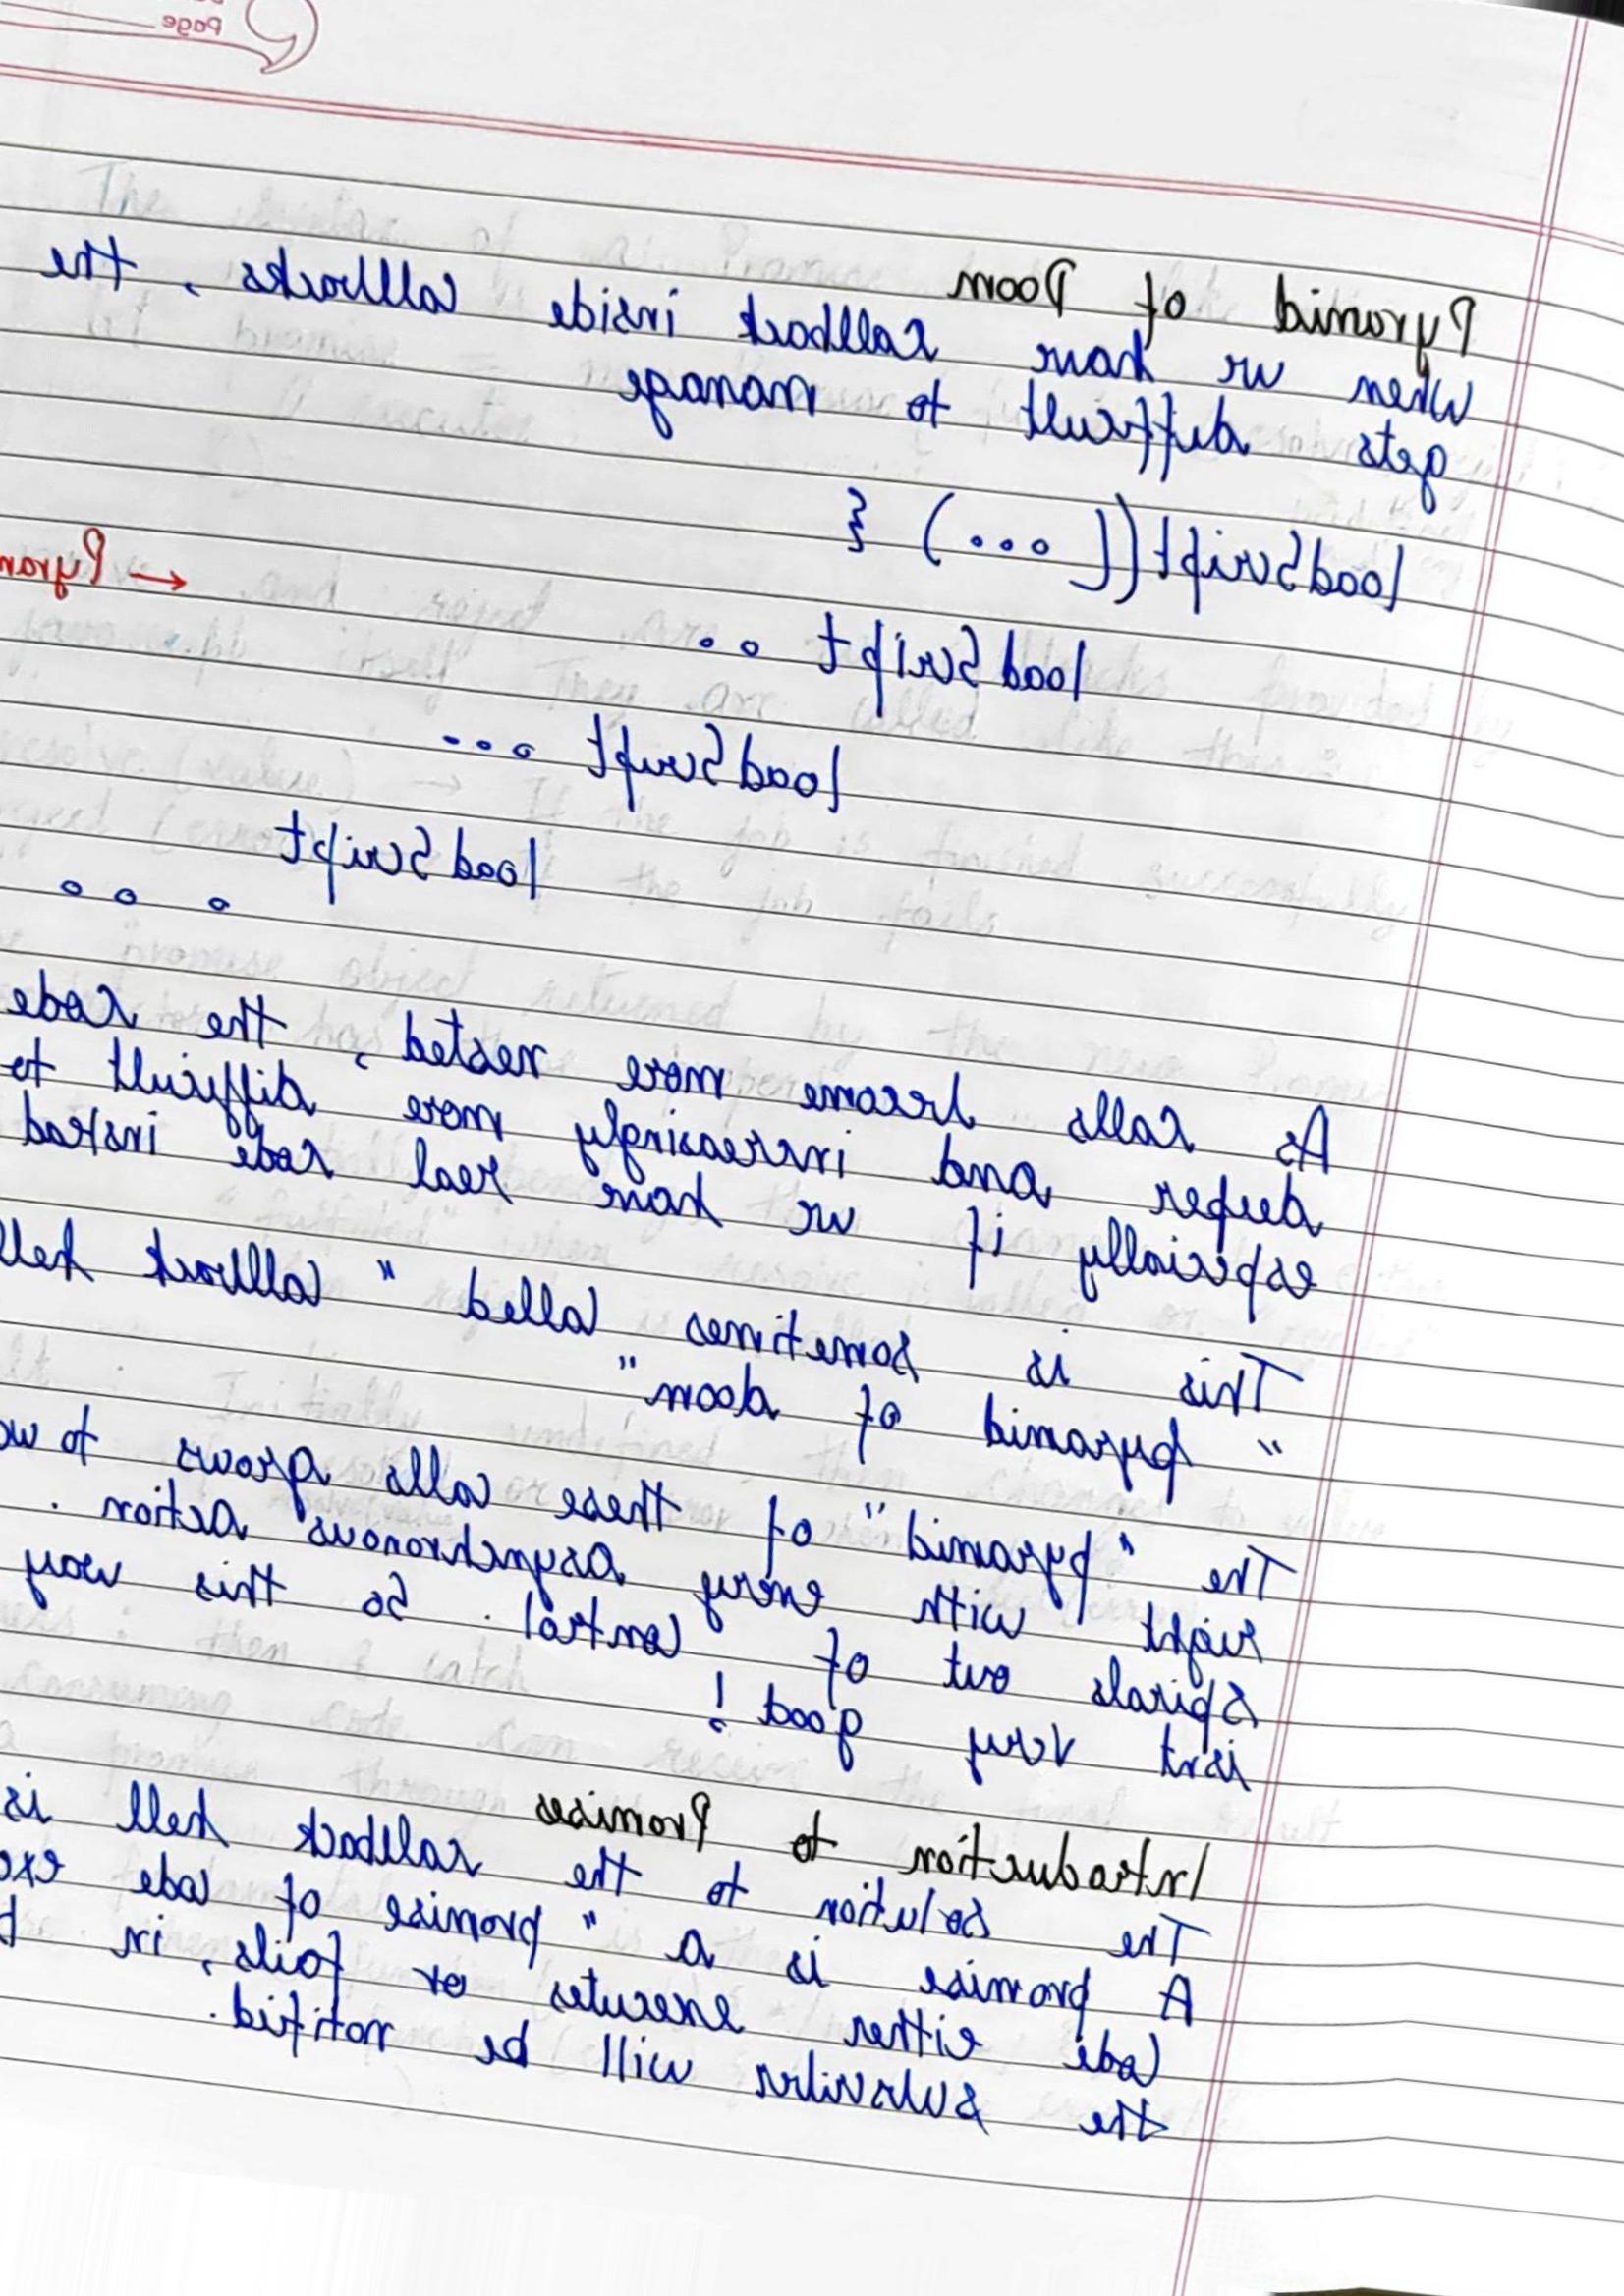 Page
Pyramid of Doom
When we have callback inside callbacks, the
gets difficult to manage
loadScript((...) {
loadScript ..
loadScript ...
loadScript
...
← Pyram
As calls become more nested, the code
deeper and increasingly more difficult to
especially if we have real code instead
This is sometimes called "callback hell
"pyramid of doom"
The "pyramid" of these calls grows to
right with every asynchronous action.
spirals out of control. So this way
isnt very good!
Introduction to Promises
The solution to the callback hell is
A promise is a "promise of code
code either executes or fails, in
the subscriber will be notifid.